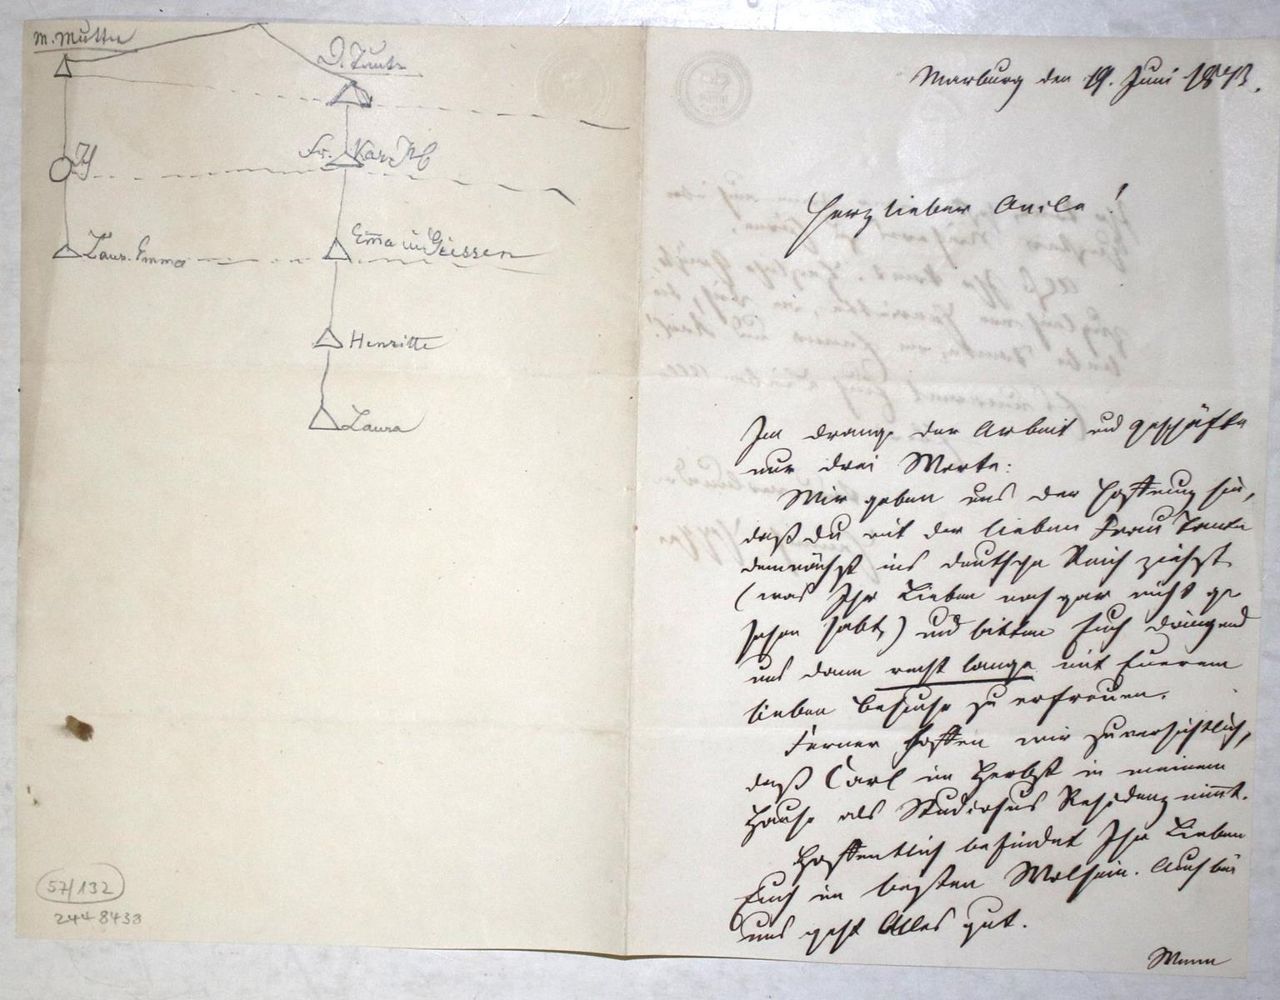 M. Mutter
D. Tante
Ich
Fr. Kar.
Laur. Emma
Emma in Geissen
Henriette
Laura
57/132
2448433
Marburg den 19. Juni 1873.
Herzlieber Onkel!
Im Drange der Arbeit und Geschäfte
nur drei Worte:
Wir geben uns der Hoffnung hin,
daß du mit der lieben Frau Tante
demnächst ins deutsche Reich ziehst
(was Ihr Lieben noch gar nicht ge
sehen habt,) und bitten Euch dringend
uns dann recht lange mit Euerem
lieben Besuche zu erfreuen.
Ferner hoffen wir zuversichtlich,
daß Carl im Herbst in meinem
Hause als Studiosus Residenz nimmt.
Hoffentlich befindet Ihr Lieben
Euch im besten Wolsein. Auch bei
uns geht Alles gut.
Wenn